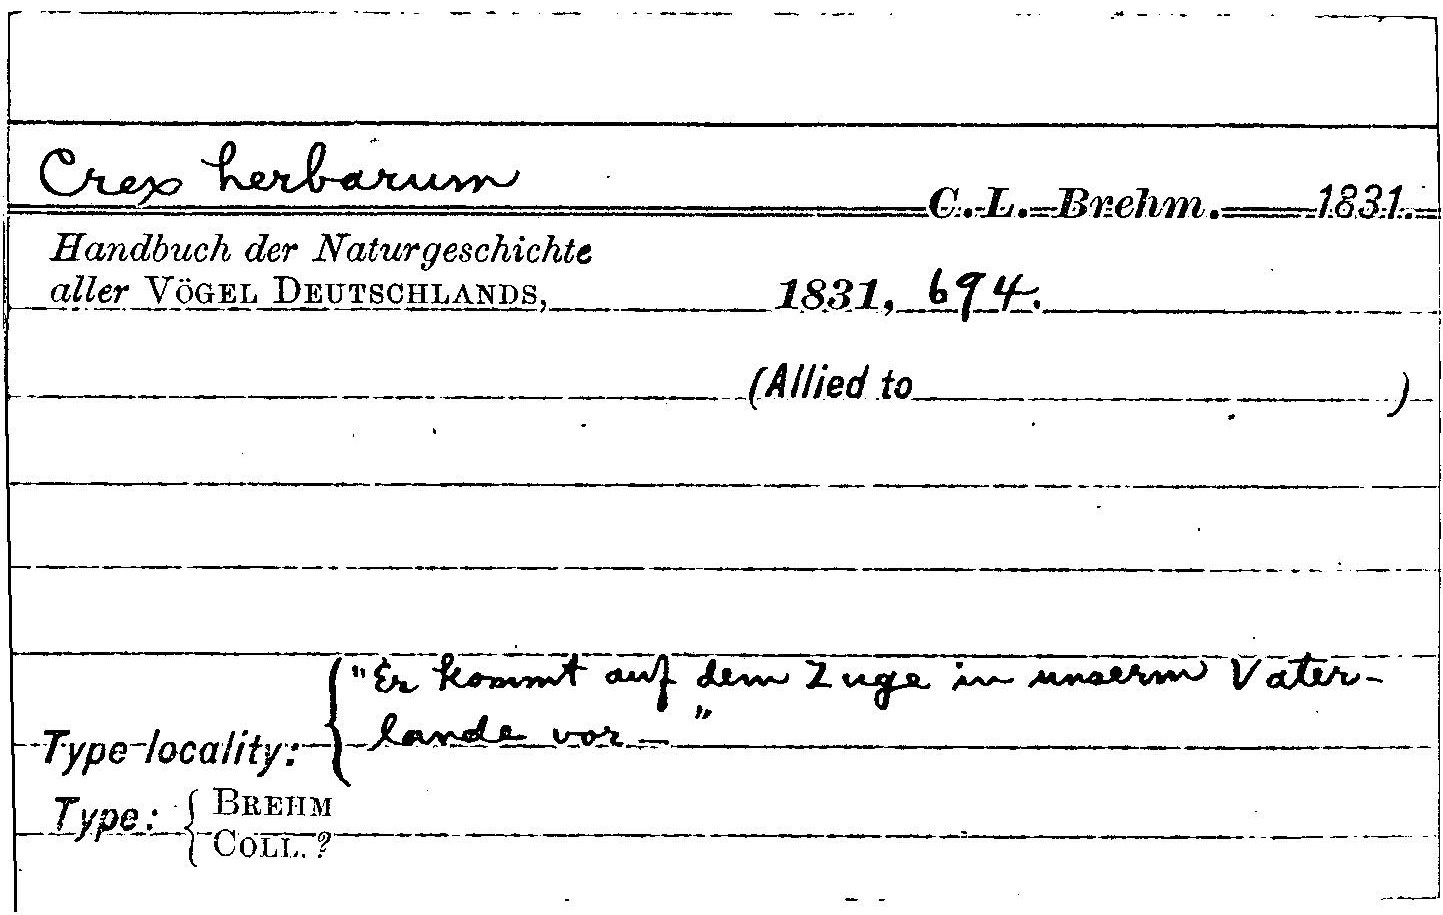 Crex herbarum
C. L. Brehm. 1831.
Handbuch der Naturgeschichte
aller VÖGEL DEUTSCHLANDS, 1831, 694.
(Allied to )
"Er kommt auf dem Zuge in unserm Vater-
lande vor — "
Type locality:
Type: BREHM
COLL. ?